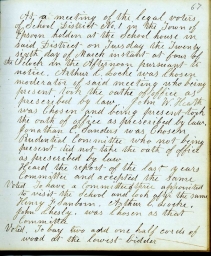 67
At a meeting of the legal voters
of School District No. 1 in the Town of
Epsom holden at the School house in
said District on Tuesday the Twenty
sixth day of March instant at four of
the Clock in the Afternoon pursuant to
notice. Arthur C. Locke was chosen
moderator of said meeting who being
present, took the oath of office as
prescribed by law. John W.
was chosen and being present took
the oath of office as prescribed by law.
Jonathan C. Sanders was Chosen
Prudential Committee who not being
present did not take the oath of office
as prescribed by law.
Heard the report of the last years
Committee and accepted the same
Voted. To have a Committee appointed
to visit the School and look after the same
Henry F. Sanborn, Arthur C. Locke,
John was chosen as that
Committee
Voted. To buy two and one half cords of
wood at the lowest bidder